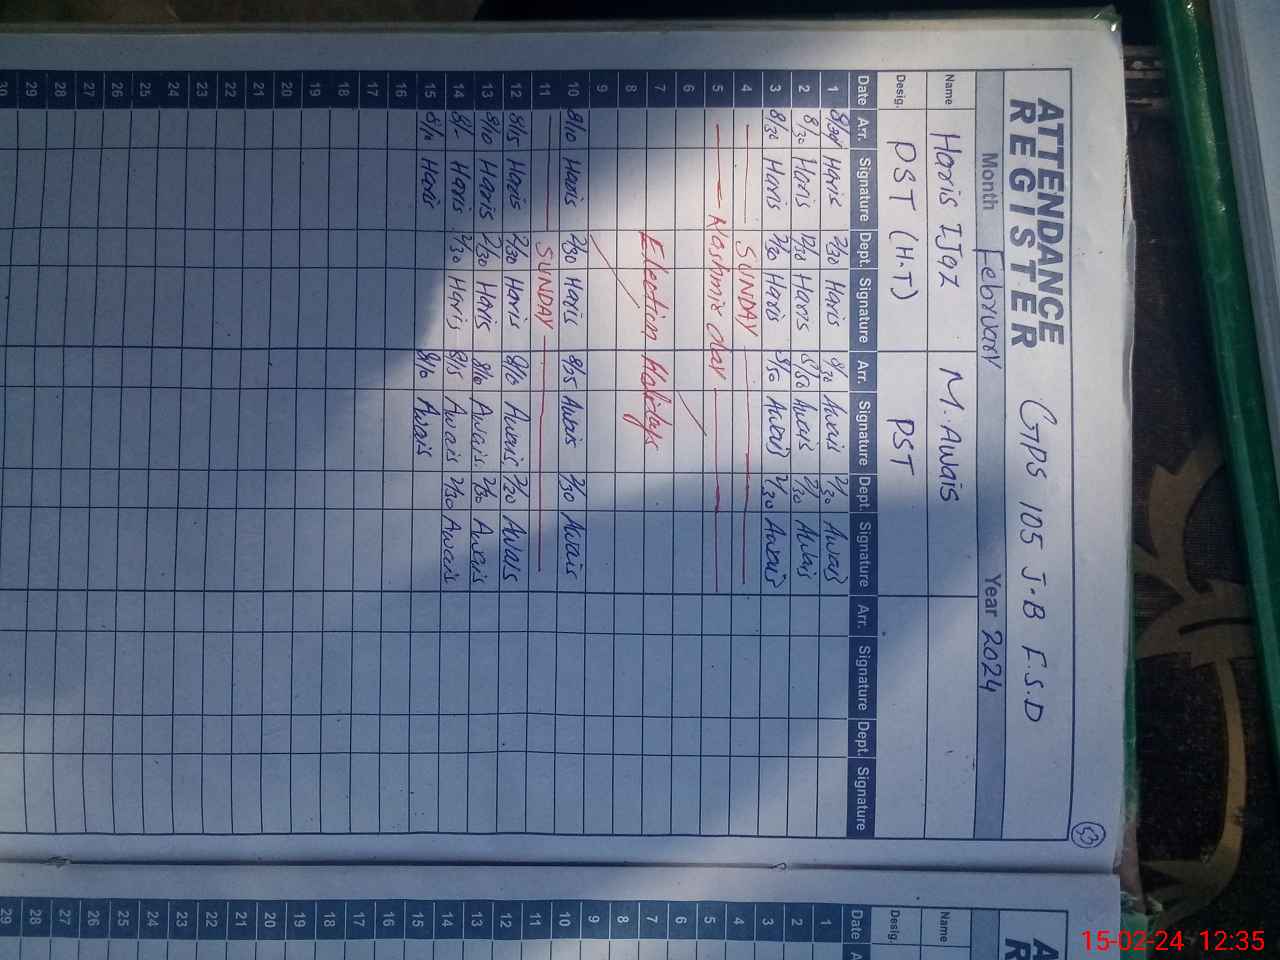 ATTENDANCE REGISTER GPS 105 J-B F.S.D
53
Month February Year 2024
Name Haris IJaz M. Awais
Desig. PST (H.T) PST
Date Arr. Signature Dept. Signature Arr. Signature Dept. Signature Arr. Signature Dept. Signature
1 8/30 Haris 2/30 Haris 8/30 Awais 2/30 Awais
2 8/30 Haris 12/30 Haris 8/50 Awais 2/30 Awais
3 8/30 Haris 2/30 Haris 8/50 Awais 2/30 Awais
4 SUNDAY
5 Kashmir day
6
7 Election Holidays
8
9
10 8/10 Haris 2/30 Haris 8/35 Awais 2/30 Awais
11 SUNDAY
12 8/15 Haris 2/30 Haris 8/10 Awais 2/20 Awais
13 8/10 Haris 2/30 Haris 8/10 Awais 2/30 Awais
14 8/- Haris 2/30 Haris 8/15 Awais 2/30 Awais
15 Haris 8/10 Awais
16
17
18
19
20
21
22
23
24
25
26
27
28
29
30
A
R
Name
Desig.
Date A
1
2
3
4
5
6
7
8
9
10
11
12
13
14
15
16
17
18
19
20
21
22
23
24
25
26
27
28
29
15-02-24 12:35